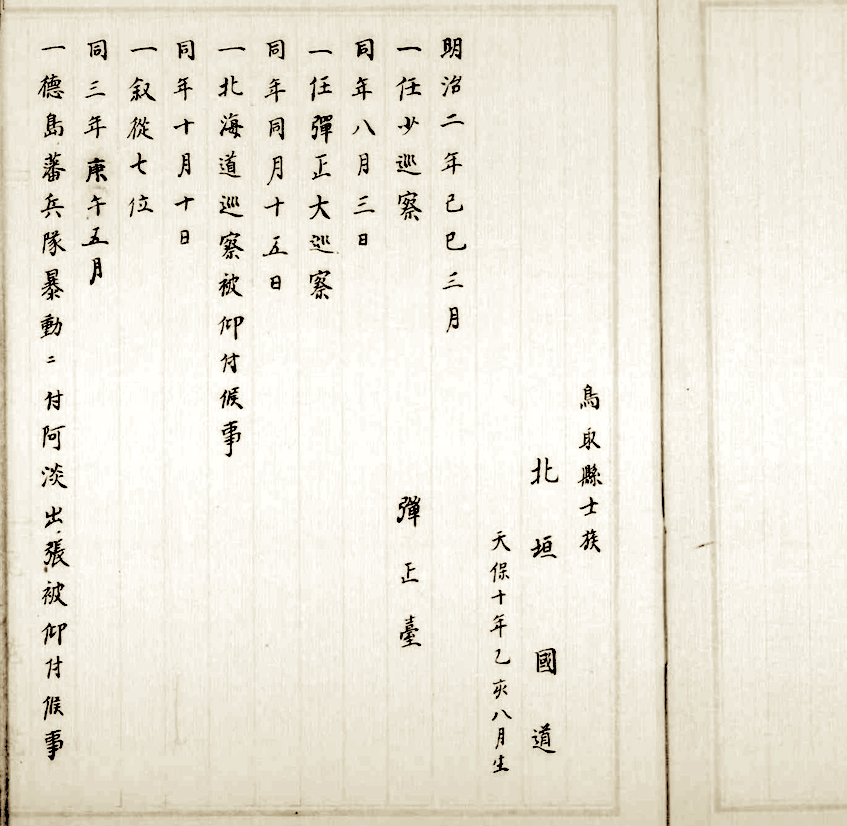 鳥取縣士族
北垣國道
天保十年乙亥八月生
明治二年己巳三月
一任少巡察
彈正臺
同年八月三日
一任彈正大巡察
同年同月十五日
一北海道巡察被仰付候事
同年十月十日
一叙從七位
同三年庚午五月
一德島藩兵隊暴動ニ付阿淡出張被仰付候事